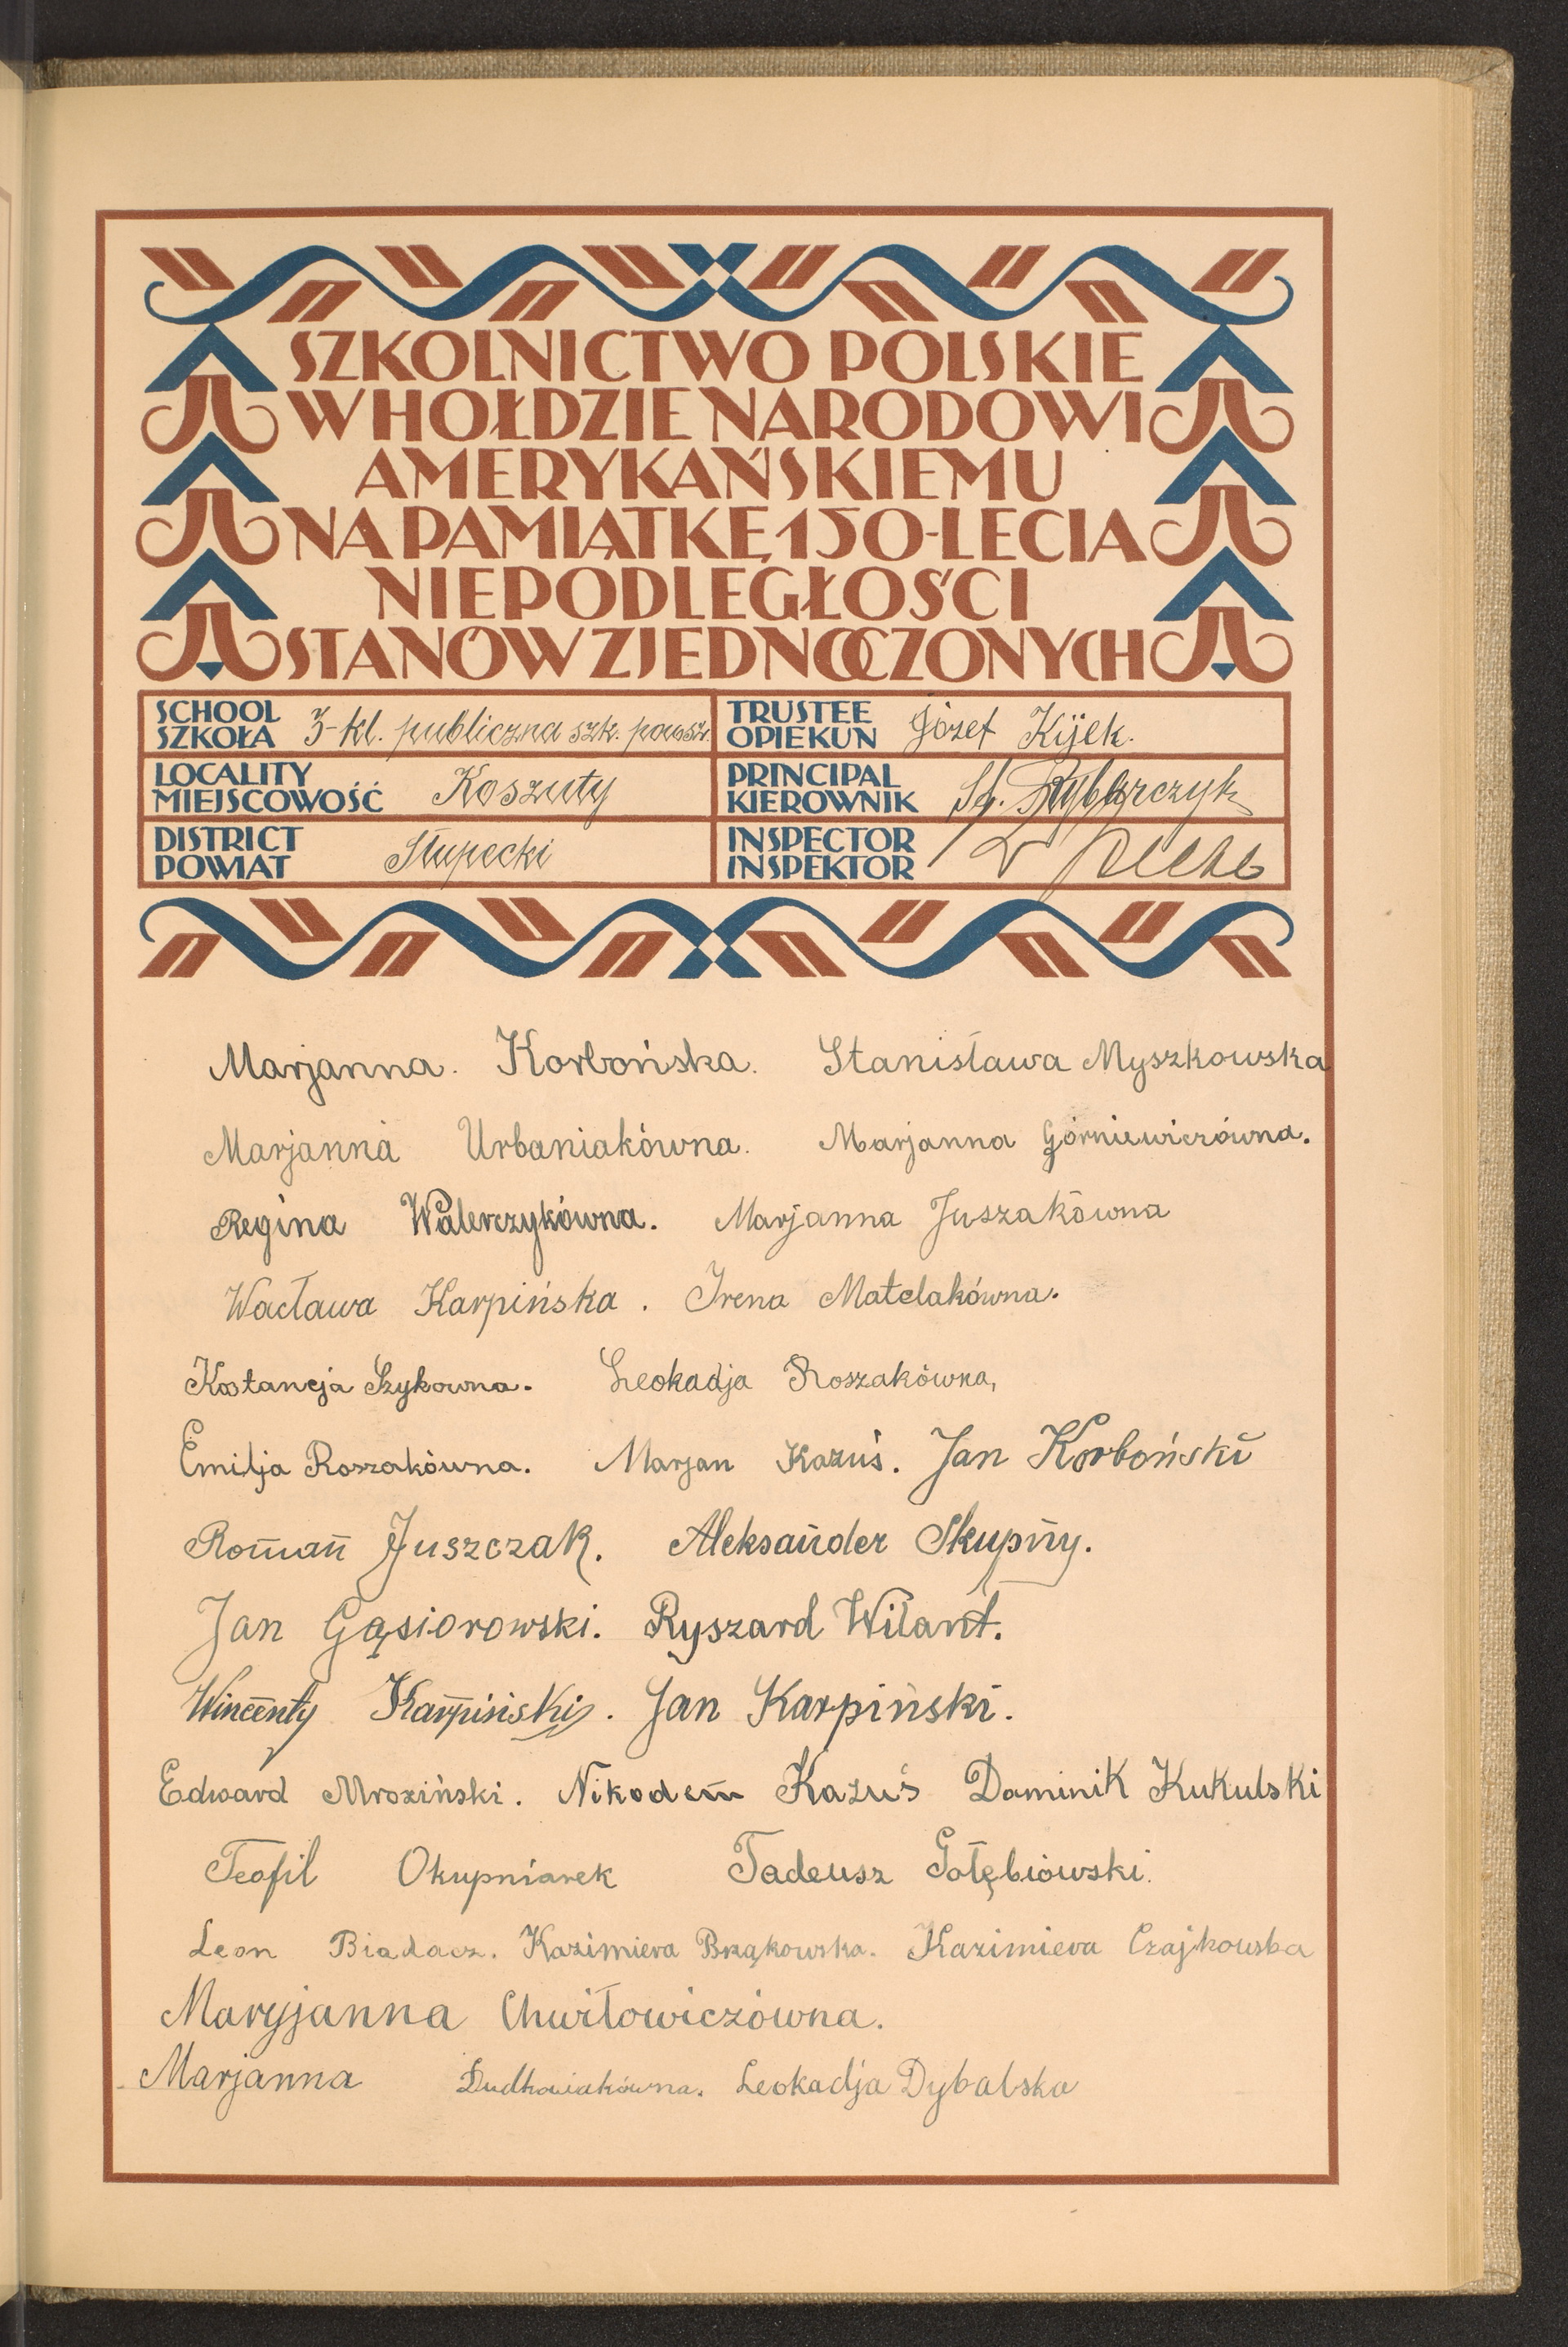 SZKOLNICTWO POLSKIE
W HOŁDZIE NARODOWI
AMERYKAŃSKIEMU
NA PAMIĄTKĘ 150-LECIA
NIEPODLEGŁOŚCI
STANÓW ZJEDNOCZONYCH
SCHOOL
SZKOŁA 3-kl. publiczna szk. powsz.
TRUSTEE
OPIEKUN Józef Kijek.
LOCALITY
MIEJSCOWOŚĆ Koszuty
PRINCIPAL
KIEROWNIK St. Rybarczyk
DISTRICT
POWIAT Słupecki
INSPECTOR
INSPEKTOR
Marjanna. Korbońska. Stanisława Myszkowska
Marjanna Urbaniakówna. Marjanna Górniewiczówna.
Regina Walerczykówna. Marjanna Juszakówna
Wacława Karpińska. Irena Matelakówna.
Kostancja Szykowna. Leokadja Roszakówna,
Emilja Roszakówna. Marjan Kazuś. Jan Korboński
Roman Juszczak. Aleksander Skupny.
Jan Gąsiorowski. Ryszard Wilant.
Wincenty Karpiński. Jan Karpiński.
Edward Mroziński. Nikodem Kazuś Dominik Kukulski
Teofil Okupniarek Tadeusz Gołębiowski.
Leon Biadacz. Kazimiera Brzękowska. Kazimiera Czajkowska
Maryjanna Chwiłowiczówna.
Marjanna Dudkowiakówna. Leokadja Dybalska